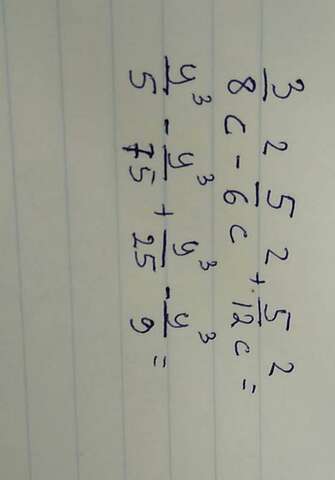 3/8 c² - 5/6 c² + 5/12 c² =
y³/5 - y³/75 + y³/25 - y³/9 =